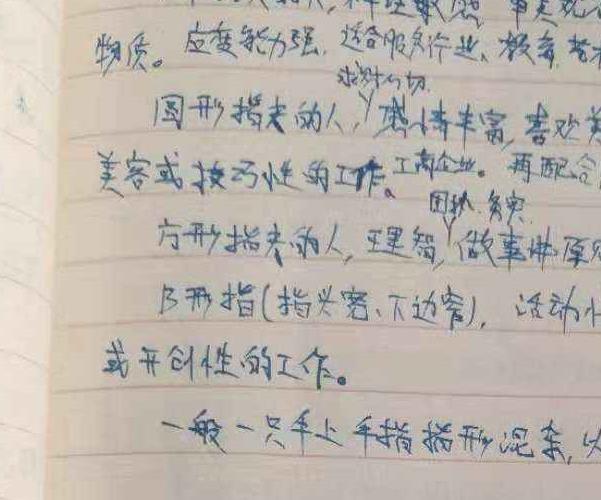 物质。应变能力强,适合服务行业、教育、艺术
求财心切
圆形指头的人,感情丰富,喜欢美
美容或技巧性的工作。工商企业。再配合
团队.务实
方形指头的人,理智,做事讲原则
B形指(指头宽、下边窄),活动
或开创性的工作。
一般一只手上手指指形混杂,以